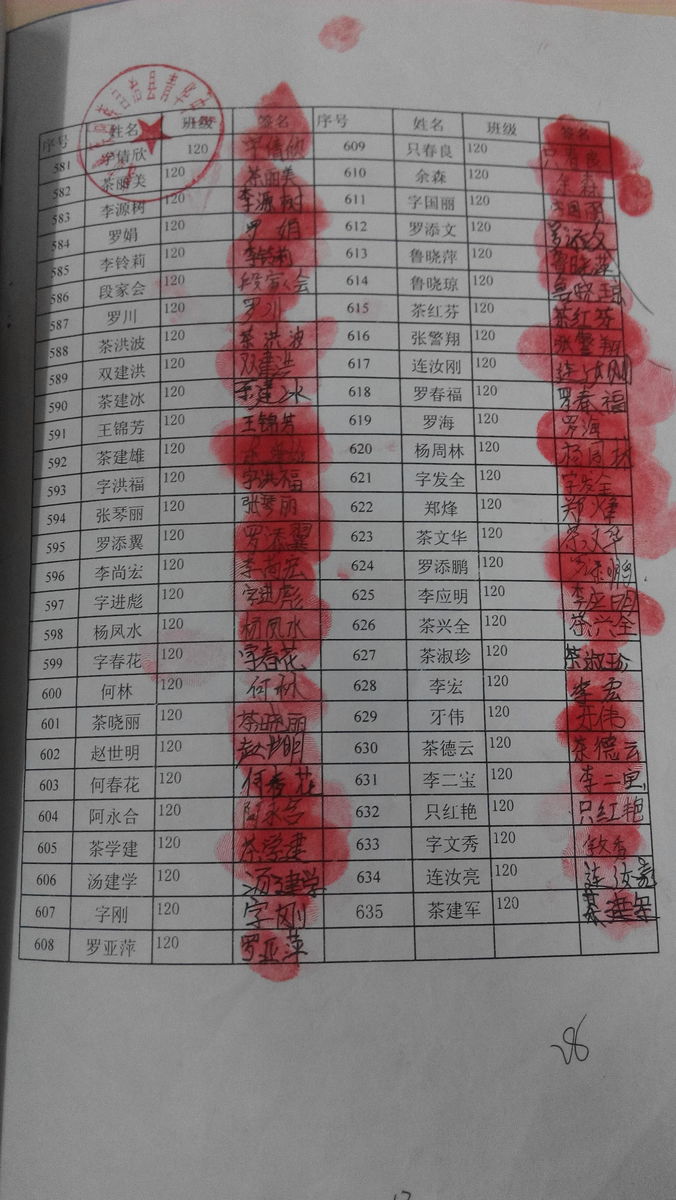 治县青华
序号 姓名 班级 签名 序号 姓名 班级 签名
581 字倩欣 120 字倩欣 609 只春良 120 只春良
582 茶丽美 120 茶丽美 610 余森 120 余森
583 李源树 120 李源树 611 字国丽 120 字国丽
584 罗娟 120 罗娟 612 罗添文 120 罗添文
585 李铃莉 120 李铃莉 613 鲁晓萍 120 鲁晓萍
586 段家会 120 段家会 614 鲁晓琼 120 鲁晓琼
587 罗川 120 罗川 615 茶红芬 120 茶红芬
588 茶洪波 120 茶洪波 616 张警翔 120 张警翔
589 双建洪 120 双建洪 617 连汝刚 120 连汝刚
590 茶建冰 120 茶建冰 618 罗春福 120 罗春福
591 王锦芳 120 王锦芳 619 罗海 120 罗海
592 茶建雄 120 茶建雄 620 杨周林 120 杨周林
593 字洪福 120 字洪福 621 字发全 120 字发全
594 张琴丽 120 张琴丽 622 郑烽 120 郑烽
595 罗添翼 120 罗添翼 623 茶文华 120 茶文华
596 李尚宏 120 李尚宏 624 罗添鹏 120 罗添鹏
597 字进彪 120 字进彪 625 李应明 120 李应明
598 杨凤水 120 杨凤水 626 茶兴全 120 茶兴全
599 字春花 120 字春花 627 茶淑珍 120 茶淑珍
600 何林 120 何林 628 李宏 120 李宏
601 茶晓丽 120 茶晓丽 629 牙伟 120 牙伟
602 赵世明 120 赵世明 630 茶德云 120 茶德云
603 何春花 120 何春花 631 李二宝 120 李二宝
604 阿永合 120 阿永合 632 只红艳 120 只红艳
605 茶学建 120 茶学建 633 字文秀 120
606 汤建学 120 汤建学 634 连汝亮 120 连汝亮
607 字刚 120 字刚 635 茶建军 120 茶建军
608 罗亚萍 120 罗亚萍
28